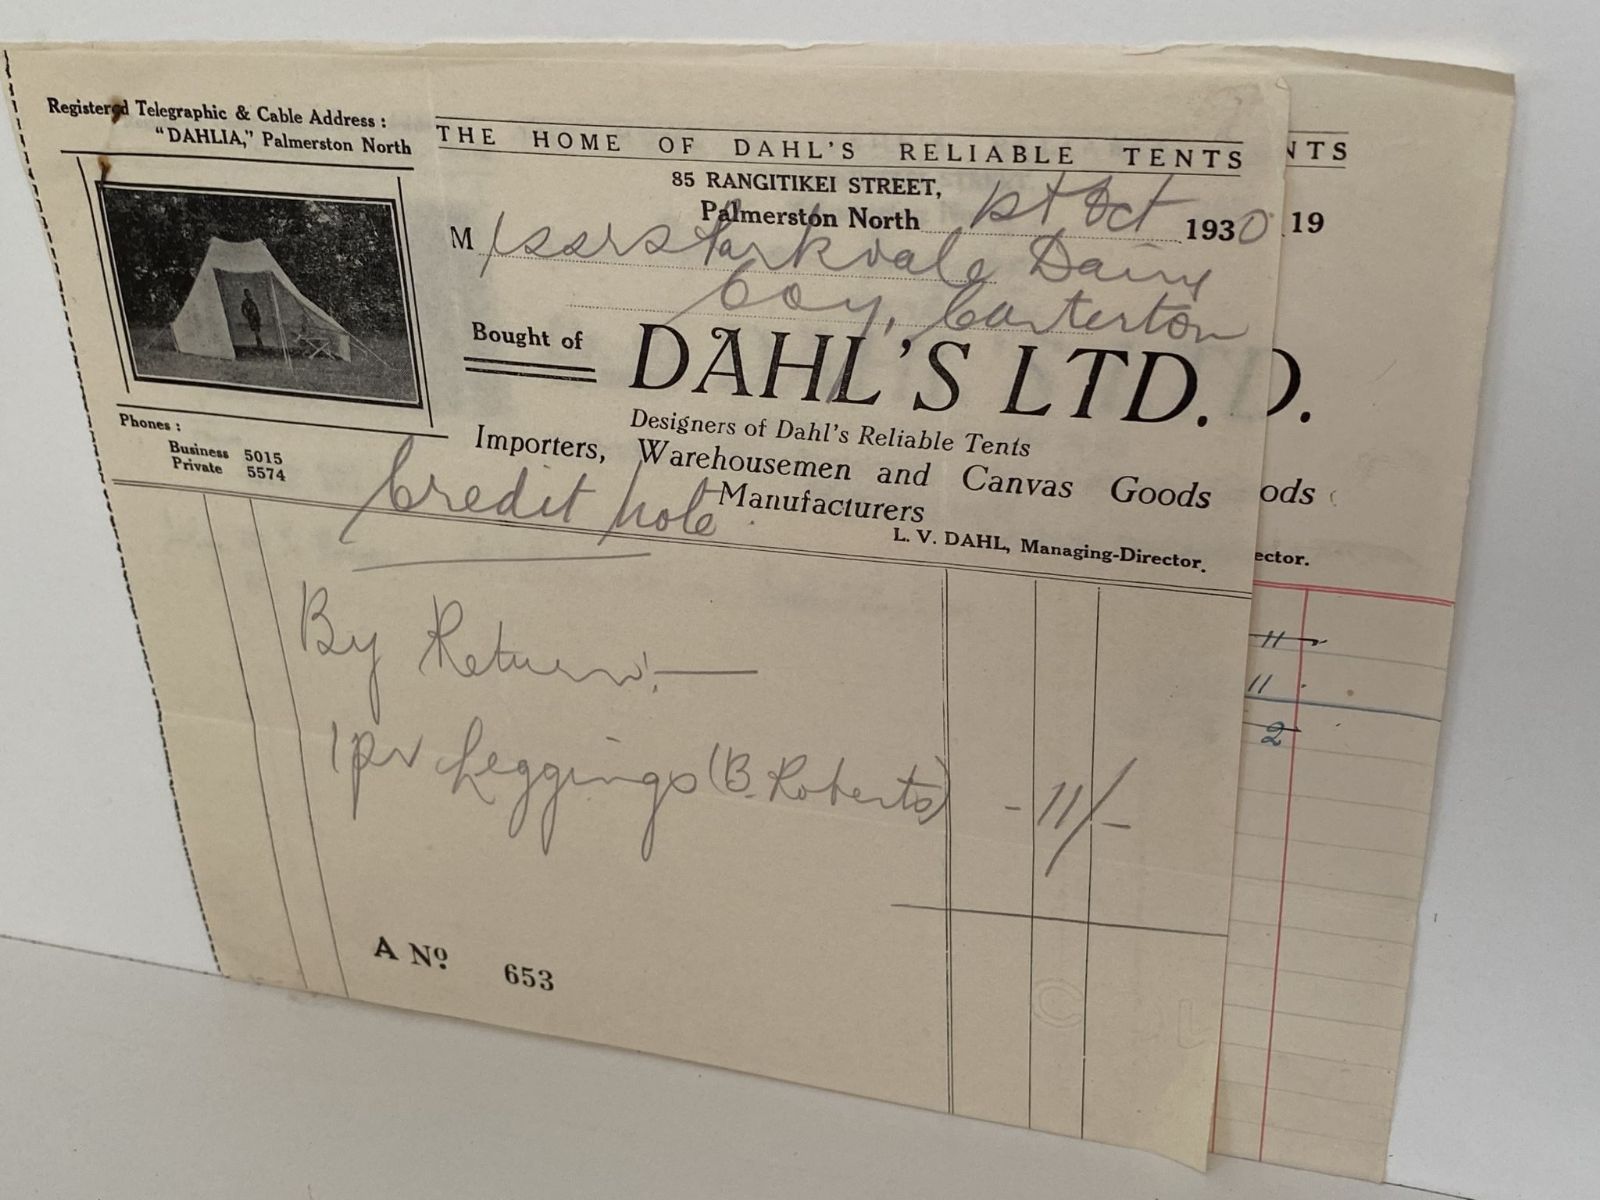 Registered Telegraphic & Cable Address :
"DAHLIA," Palmerston North
THE HOME OF DAHL'S RELIABLE TENTS
85 RANGITIKEI STREET,
Palmerston North 1st Oct 1930
Messrs Parkvale Dairy
Coy, Carterton
Bought of
DAHL'S LTD.
Designers of Dahl's Reliable Tents
Importers, Warehousemen and Canvas Goods
Manufacturers
L. V. DAHL, Managing-Director.
Phones :
Business 5015
Private 5574
Credit Note
By Return:—
1 pr Leggings (B. Roberts) - 11/-
A No. 653
NTS
19
D.
ods
ector.
11
11
2